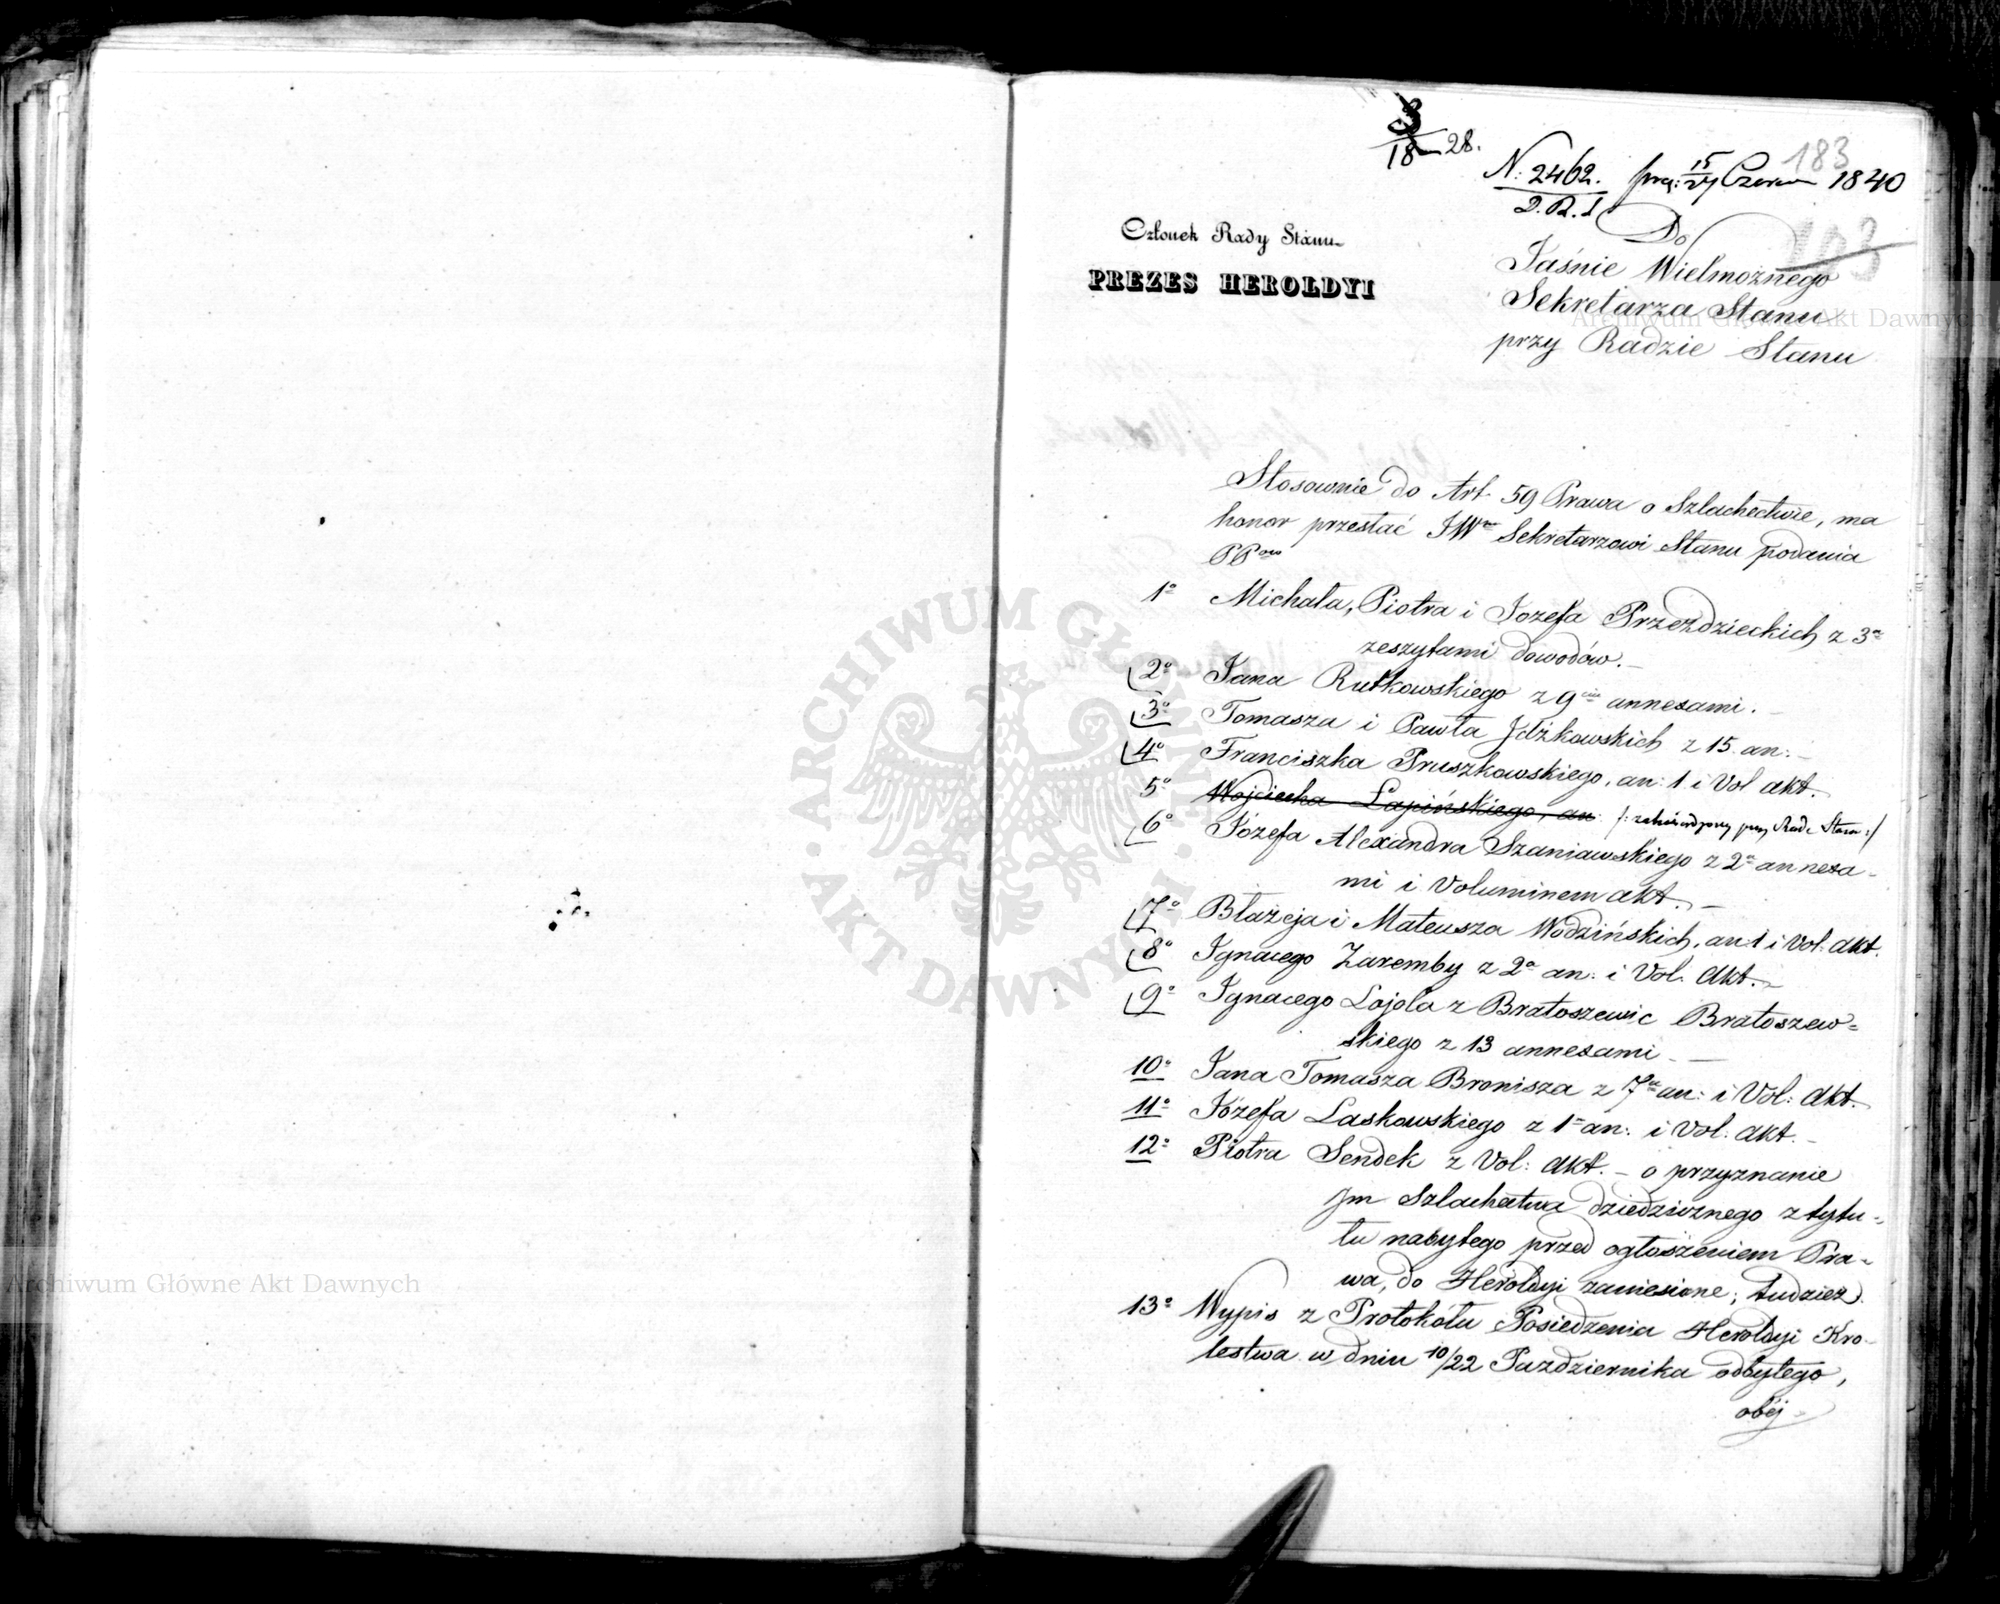 3
18 28.
183
N: 2462. prez: 15/27 Czerw 1840
D.R.S
Członek Rady Stanu
PREZES HEROLDYI
Do
Jaśnie Wielmożnego
Sekretarza Stanu
przy Radzie Stanu
Stosownie do Art. 59 Prawa o Szlachectwie, ma
honor przesłać JWmu Sekretarzowi Stanu podania
PPow
1o Michała, Piotra i Jozefa Przezdzieckich z 3a
zeszytami dowodów. –
2o Jana Rutkowskiego z 9cia annexami. –
3o Tomasza i Pawła Jdźkowskich z 15 an: –
4o Franciszka Pruszkowskiego, an: 1 i Vol akt.
5o Wojciecha Łapińskiego, an: /: przy Radz Stanu :/
6o Józefa Alexandra Szaniawskiego z 2a annexa-
mi i Voluminem akt. –
7o Błażeja i Mateusza Wodzińskich, an: 1 i Vol: akt.
8o Ignacego Zaremby z 2a an: i Vol. akt. –
9o Ignacego Lojola z Bratoszewic Bratoszew=
skiego z 13 annexami. –
10o Jana Tomasza Bronisza z 7a an: i Vol: akt.
11o Józefa Laskowskiego z 1 an: i Vol: akt. –
12o Piotra Sendek z Vol: akt. – o przyznanie
Jm Szlachectwa dziedzicznego z tytu-
łu nabytego przed ogłoszeniem Pra-
wa, do Heroldyi zaniesione; tudzież
13o Wypis z Protokółu Posiedzenia Heroldyi Kro-
lestwa w dniu 10/22 Pazdziernika odbytego,
obej-
ARCHIWUM GŁÓWNE AKT DAWNYCH
Archiwum Główne Akt Dawnych
Archiwum Główne Akt Dawnych